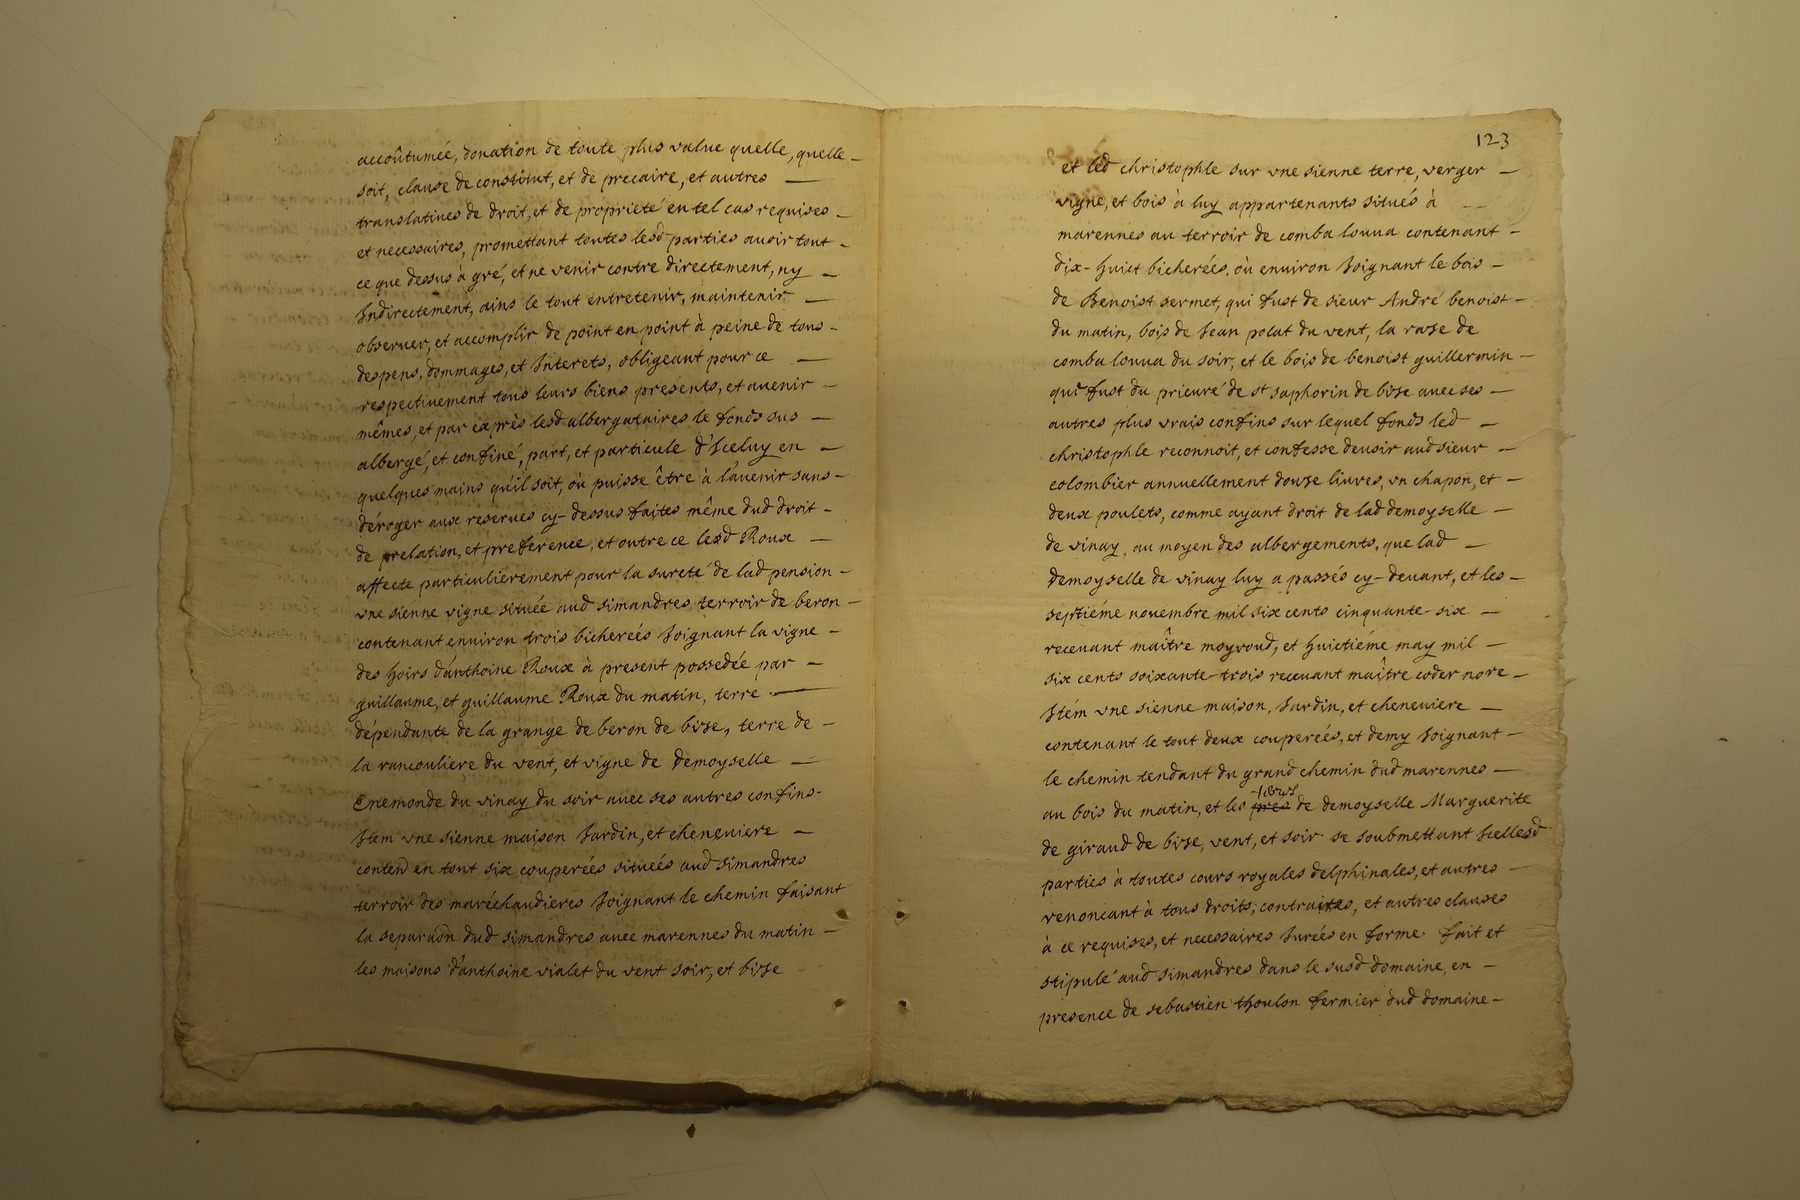 accoûtumée, donation de toute plus value quelle, quelle
soit, clause de constitut, et de precaire, et autres
translatives de droit, et de proprieté en tel cas requises
et necessaires, promettant toutes lesd parties avoir tout
ce que dessus à gré, et ne venir contre directement, ny
Indirectement, ains le tout entretenir, maintenir
observer, et accomplir de point en point à peine de tous
despens, dommages, et Interets, obligeant pour ce
respectivement tous leurs biens presents, et avenir
mêmes, et par exprès lesd albergataires le fonds sus
albergé, et confiné, part, et particule d'Iceluy en
quelques mains qu'il soit, où puisse être à l'avenir sans
déroger aux reserves cy-dessus faites même dud droit
de prelation, et preference, et outre ce lesd Roux
affecte particulierement pour la sureté de lad pension
une sienne vigne située aud simandres terroir de beron
contenant environ trois bicherées Joignant la vigne
des hoirs d'anthoine Roux à present possedée par
guillaume, et guillaume Roux du matin, terre
dépendante de la grange de beron de bize, terre de
la rancouliere du vent, et vigne de demoyselle
Enemonde du vinay du soir avec ses autres confins
Item une sienne maison Jardin, et cheneviere
contend en tout six couperées situeés aud simandres
terroir des maréchaudieres Joignant le chemin faisant
la separaôn dud simandres avec marennes du matin
les maisons d'anthoine vialet du vent soir, et bize
123
et led christophle sur une sienne terre, verger
vigne, et bois à luy appartenants situés à
marennes au terroir de comba louva contenant
dix-huict bicherées, où environ Joignant le bois
de Benoist sermet, qui fust de sieur André benoist
du matin, bois de Jean polat du vent, la raze de
comba louva du soir, et le bois de benoist guillermin
qui fust du prieuré de st saphorin de bize avec ses
autres plus vrais confins sur lequel fonds led
christophle reconnoit, et confesse devoir aud sieur
colombier annuellement douze livres, un chapon, et
deux poulets, comme ayant droit de lad demoyselle
de vinay, au moyen des albergements, que lad
demoyselle de vinay luy a passés cy-devant, et les
septiéme novembre mil six cents cinquante-six
recevant maître moyroud, et huictiéme may mil
six cents soixante-trois recevant maître coder nore
Item une sienne maison, Jardin, et cheneviere
contenant le tout deux couperées, et demy Joignant
le chemin tendant du grand chemin dud marennes
au bois du matin, et les prés de demoyselle Marguerite
de giraud de bize, vent, et soir se soubmettant Icellesd
parties à toutes cours royales delphinales, et autres
renoncant à tous droits, contraires, et autres clauses
à ce requises, et necessaires Jurées en forme fait et
stipulé aud simandres dans le susd domaine, en
presence de sebastien thoulon fermier dud domaine